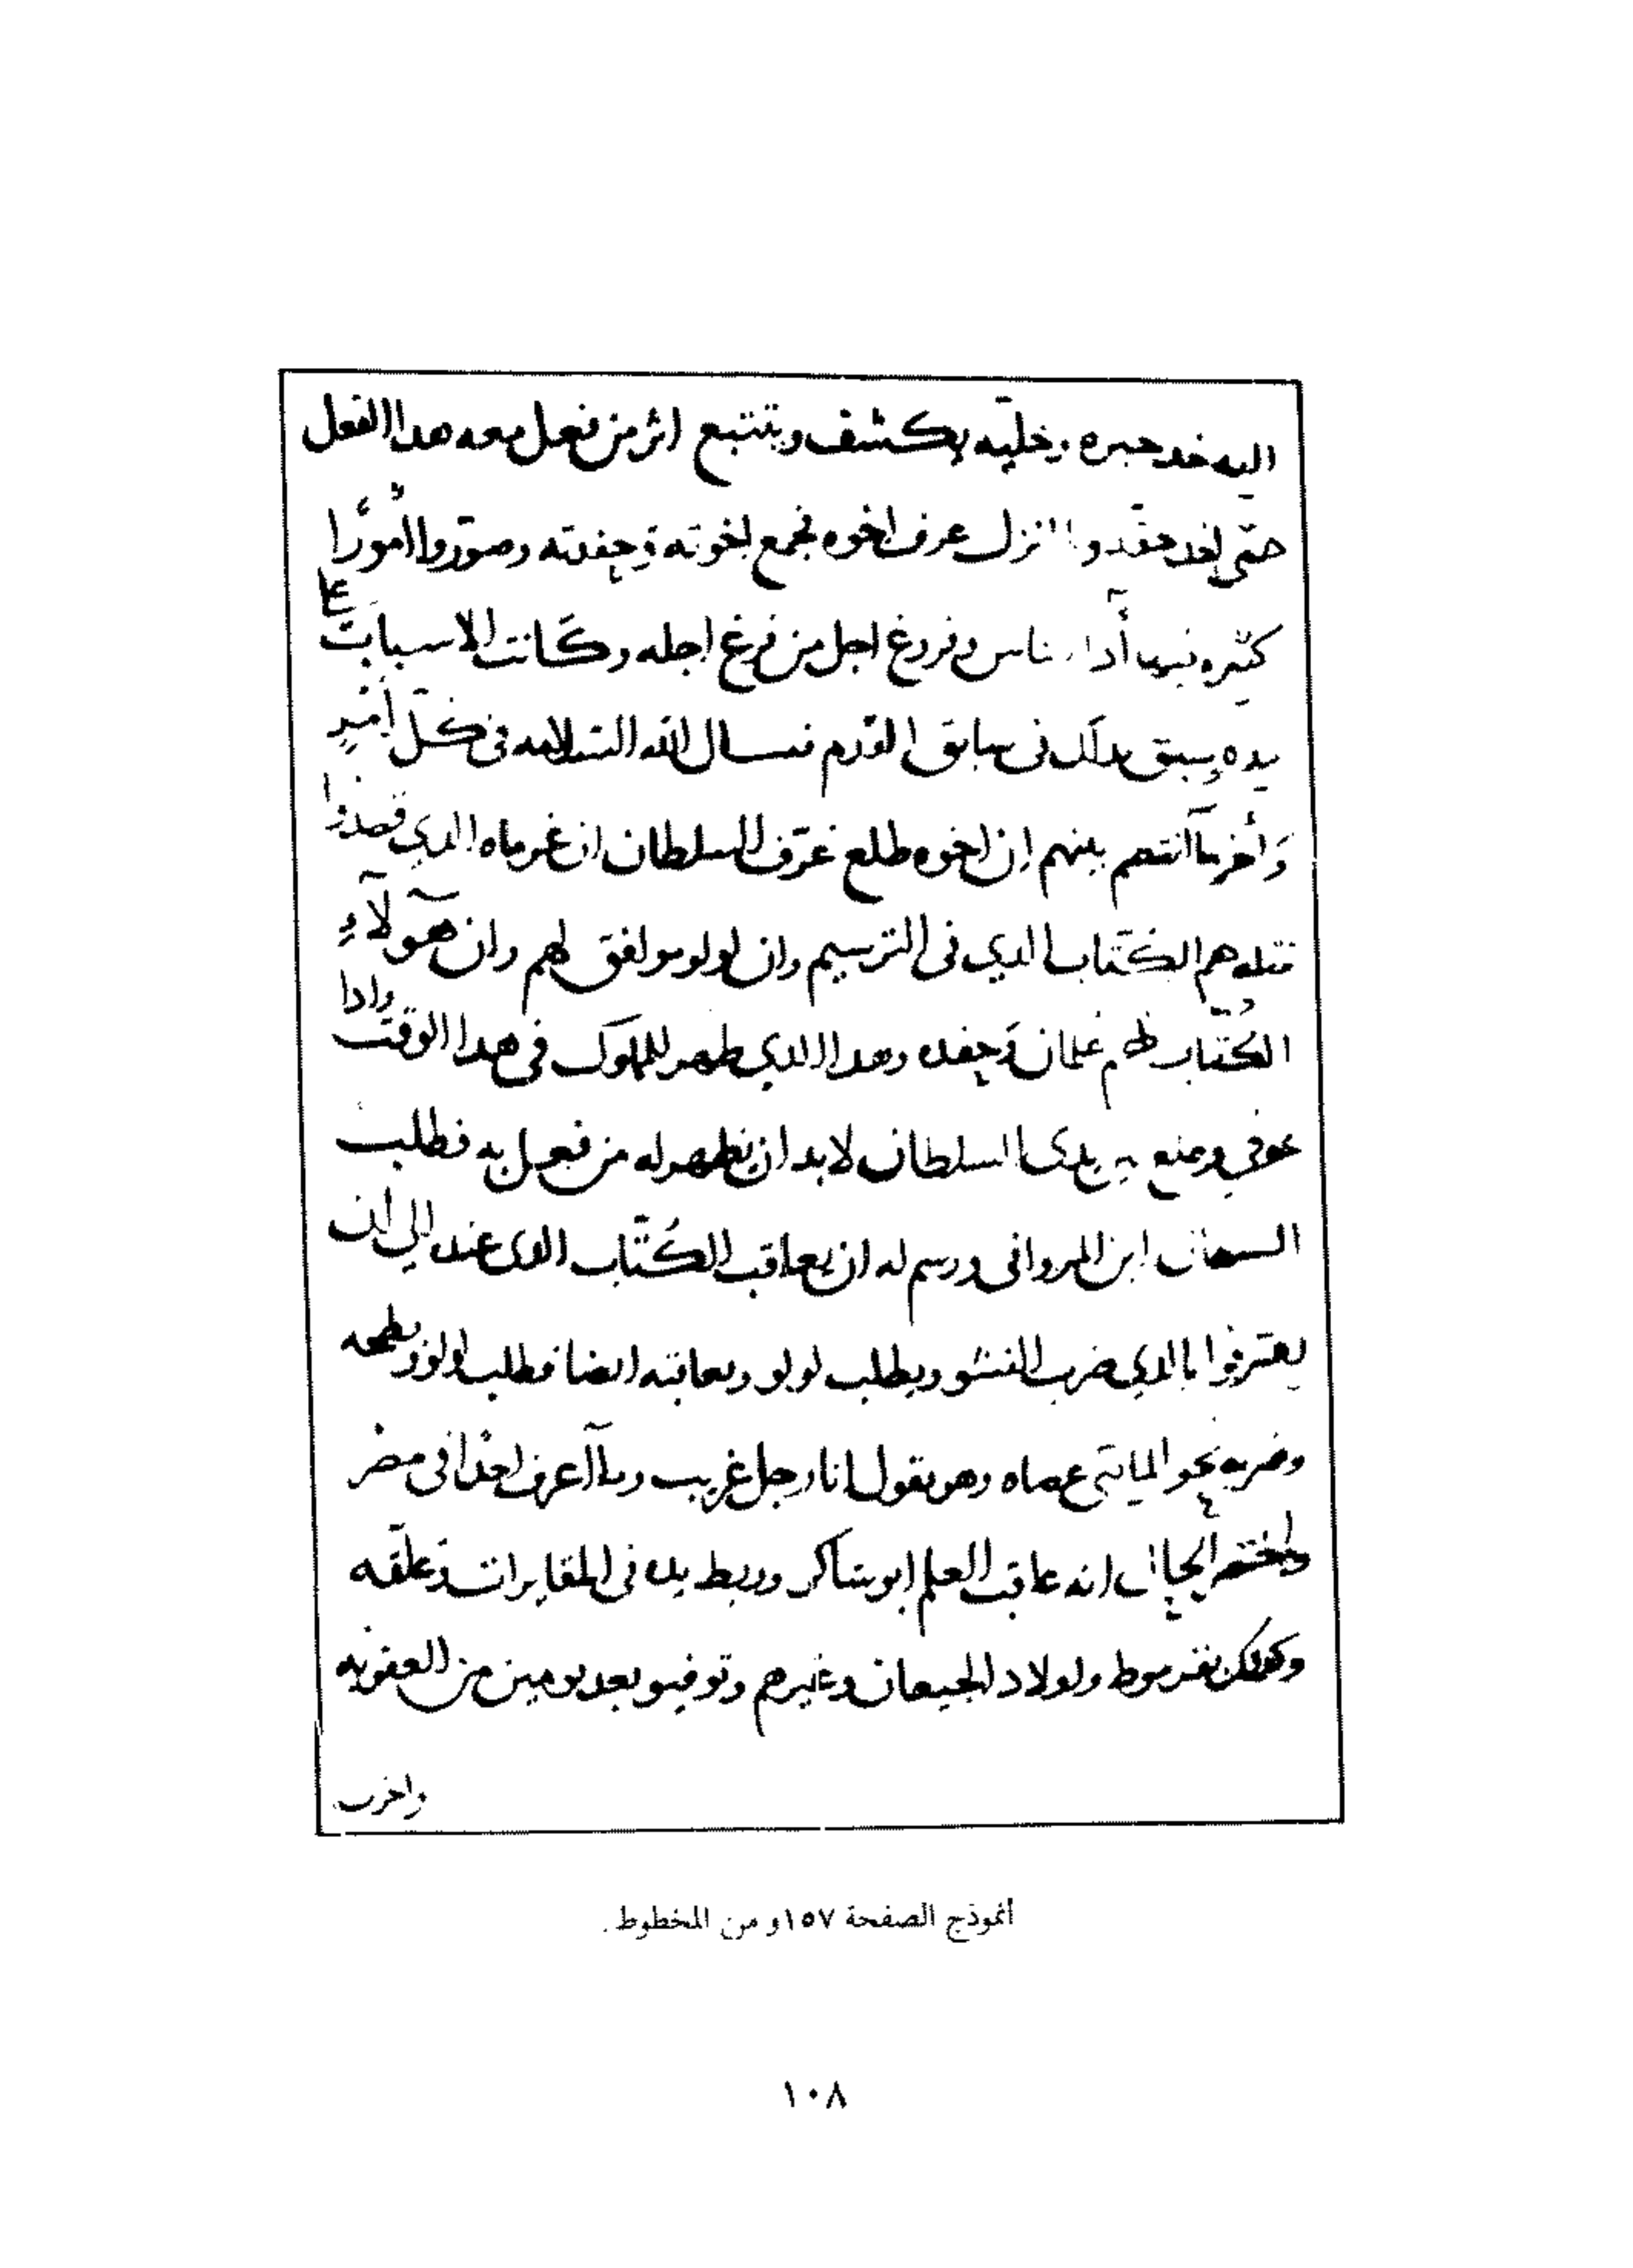 اليه خد حبره وخليه يكشف ويتتبع اثر من فعل معه هدا الفعل
حتى اخد حقه ولما نزل عرف اخوه فجمع اخوته وحفدته وصوروا امورًا
كثيره فيها أدا ناس وفروغ اجل من فرغ اجله وكانت الاسباب
يده وسبق بدلك فى سابق القدم فنسال الله السلامه فى كل أمر
وأخر ما آتفقهم بينهم ان اخوه طلع عرّف السلطان ان غرماه الدي قصدوا
قتله هم الكتاب الدي فى الترسيم وان لولو موافق لهم وان هؤلآء
الكُتّاب لهم غلمان وحفده وهدا الدي ظهر للملوك فى هدا الوقت وادا
عوفي وصنع بين يدى السلطان لابد ان يظهر له من فعل به فطلب
السلطان ابن المروانى ورسم له ان يعاقب الكُتّاب الدى عنده الي ان
يعترفوا بالدي ضرب النشو ويطلب لولو ويعاقبه ايضا فطلب لولو وبطحه
وضربه نحو المايتى عصاه وهو يقول انا رجل غريب وما آعرف احدًا فى مصر
واختصر الحال انه عاقب العلم ابو شاكر وربط يده فى المقايرات وعلّقه
وكدلك بقرموط واولاد الجيعان وغيرهم وتوفيو بعد يومين من العقوبه
واخرب
أنموذج الصفحة ١٥٧و من المخطوط.
١٠٨